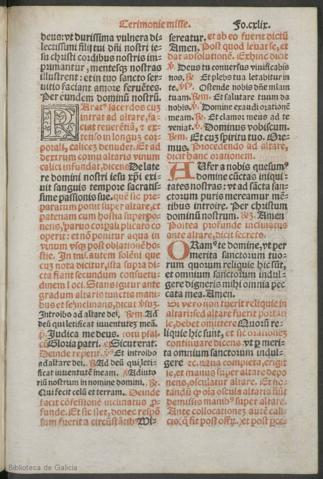 Cerimonie misse. Fo.cxlix.
deus: vt durissima vulnera di
lectissimi filij tui dñi nostri ie-
su christi cordibus nostris im-
pumantur, mentesqz nostras
illustrent: et in tuo sancto ser-
uitio faciant amore feruẽtes.
Per eundem dominũ nostrũ.
sacerdos cum
intrat ad altare, fa-
ciat reuerẽtiã, et
tenso in longuz cor-
porali, calicez denudet. Et ad
dextrum cornu altaris vinum
calici infundat, dicens De late
re domini nostri iesu xp̃i exi-
uit sanguis tempore sacratis-
sime passionis sue. quẽ sic pre-
paratum ponit super altare, et
patenam cum hostia superpo-
nens, paruo corpali plicato co
operit: et nõ ponitur aqua in
vinum vsqz post oblationẽ ho-
stie. In missis autem solẽni que
cuz nota dicitur, ista supra di-
cta fiant secundum consuetu-
dinem loci. Stans igitur ante
gradum altaris iunctis mani-
bus et se inclinans, dicat
Introibo ad altare dei. Ad
deũ qui letificat iuuentutez meã.
Judica me deus. totũ psal.
cũ Gloria patri. Sicut erat.
Deinde repetit. Et introibo
ad altare dei. Ad deũ qui leti-
ficat iuuentutẽ meam. Adiuto
riũ nostrum in nomine domini.
Qui fecit celũ et terram. Deinde
facit cõfessionẽ inclinatus pro-
funde. Et sic stet, donec respõ
sum fuerit a circũstãtib9 Mi-
sereatur. et ab eo fuerit dictũ
Amen. Post quod leuat se, et
dat absolutionẽ. Exinde dicit
Deus tu conuersus viuificabis
nos. Et plebs tua letabitur in
te. Ostende nobis dñe miam
tuam. Et salutare tuum da
nobis. Domine exaudi orationẽ
meam. Et clamor meus ad te
veniat. Dominus vobiscum.
Et cum spiritu tuo. Ore-
mus. Procedendo ad altare,
dicit hanc orationem.
Aufer a nobis quesum9
domine cũctas iniqui-
tates nostras: vt ad sãcta san-
ctorum puris mereamur mẽ-
tibus introire. Per christum
dominũ nostrum. Amen.
Postea profunde inclinatus
ante altare, dicit orationem.
Oramus te domine, vt per
merita sanctorum tuo-
rum quorum reliquie hic sũt,
et omnium sanctorum indul-
gere digneris mihi omnia pec
cata mea. Amen.
Si vero non fuerit reliquie in
altari sed altare fuerit porta-
le, debet omittere Quorũ re-
liquie hic sunt, et sic orationẽ
continuare dicens. vt p meri-
ta omnium sanctorum indul-
gere ec. Qua completa, erigit
se, et manus super altare depo
nens, osculatur altare. Et no-
tandũ qp oĩa oscula altaris fiũt
demissis manib9 super altare.
Ante collocationez autẽ cali-
cis:
Biblioteca de Galicia